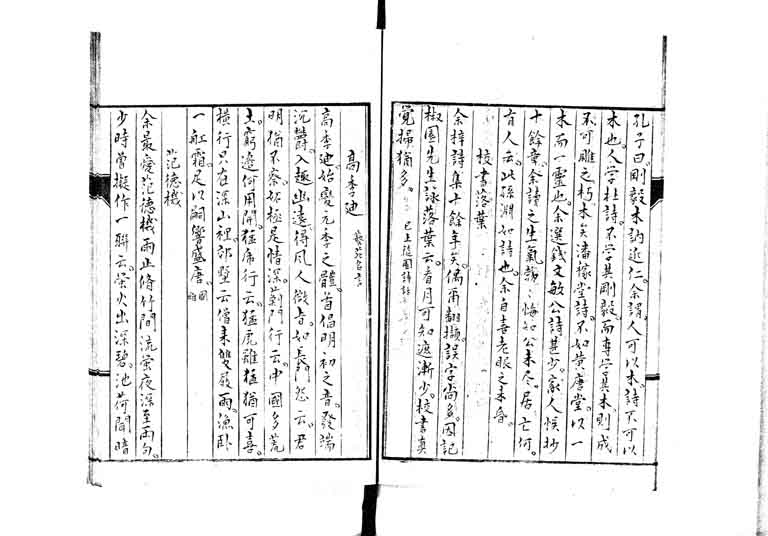 孔子曰。剛毅木訥近仁。余謂人可以木。詩不可以
木也。人学杜詩。不学其剛毅。而専学其木。則成
不可雕之朽木矣。潘稼堂詩。不如黄唐堂。以一
木而一靈也。余選錢文敏公詩甚少。家人悞抄
十餘章。余讀之生氣勃勃。悔知公未尽。居亡何。
有人云。此孫淵如詩也。余自喜老眼之未昏。
校書落葉
余梓詩集十餘年矣。偶爾翻撷。誤字尚多。因記
椒園先生詠落葉云。看月可知遮漸少。校書真
覚掃猶多。已上随園詩話
高季迪 藝苑名言
高季迪。始変元季之體。首倡明初之音。發端
沉欝。入趣幽遠。得風人微旨。如長門怨云。君
明猶不察。妬極是情深。荊門行云。中國多荒
土。窮邊何用開。猛虎行云。猛虎雖猛猶可喜。
横行只在深山裡。郊墅云。僧来雙屐雨。漁臥
一舡霜。足以嗣響盛唐。
范德機
余最愛范德機雨止脩竹間流螢夜深至両句。
少時曽擬作一聯云。螢火出深碧。池荷聞暗